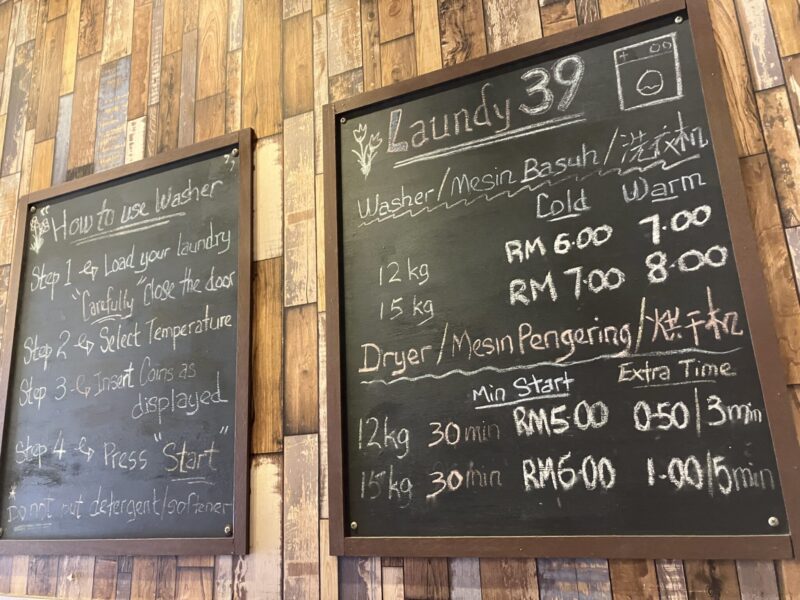 "How to use Washer"
Step 1 ↪ Load your laundry
"Carefully" Close the door
Step 2 ↪ Select Temperature
Step 3 ↪ Insert Coins as
displayed
Step 4 ↪ Press "Start"
*Do not put detergent/softener
Laundy 39
Washer/Mesin Basuh/洗衣机
Cold Warm
12 kg RM 6.00 7.00
15 kg RM 7.00 8.00
Dryer/Mesin Pengering/烘干机
Min Start Extra Time
12kg 30 min RM5.00 0.50/3min
15kg 30 min RM6.00 1.00/5min